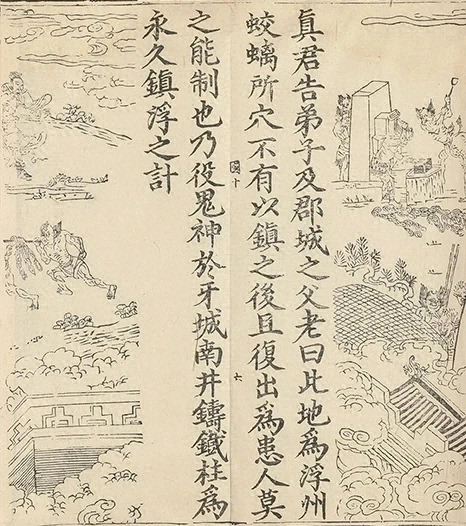 真君告弟子及郡城之父老曰此地爲浮州
蛟螭所穴不有以鎮之後且復出爲患人莫
圖十
六
之能制也乃役鬼神於牙城南井鑄鐵柱爲
永久鎮浮之計